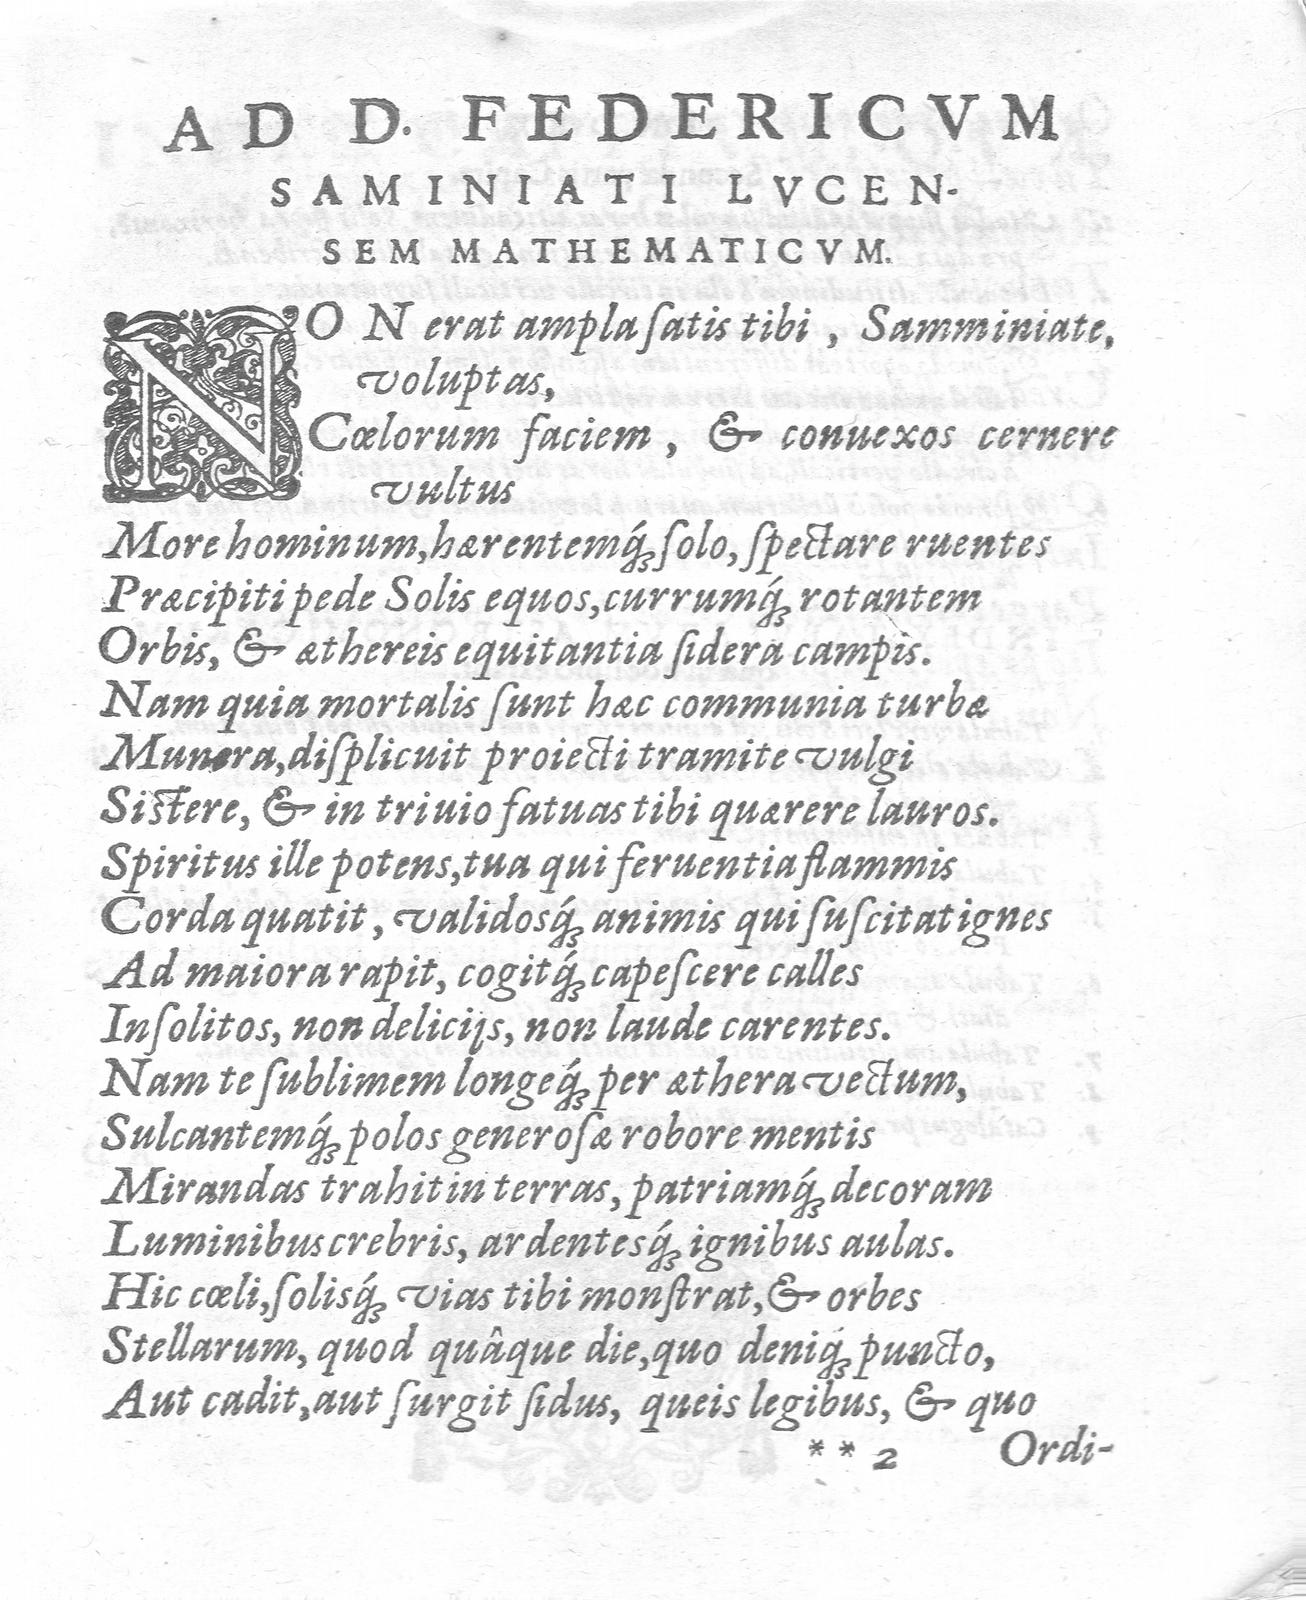 AD D. FEDERICVM
SAMINIATI LVCEN-
SEM MATHEMATICVM.
NON erat ampla ſatis tibi, Samminiate,
voluptas,
Cœlorum faciem, & conuexos cernere
vultus
More hominum, hærentemq́; ſolo, ſpectare ruentes
Præcipiti pede Solis equos, currumq́; rotantem
Orbis, & æthereis equitantia ſidera campis.
Nam quia mortalis ſunt hæc communia turbæ
Munera, diſplicuit proiecti tramite vulgi
Siſtere, & in triuio fatuas tibi quærere lauros.
Spiritus ille potens, tua qui feruentia flammis
Corda quatit, validosq́; animis qui ſuſcitat ignes
Ad maiora rapit, cogitq́; capeſcere calles
Inſolitos, non delicijs, non laude carentes.
Nam te ſublimem longeq́; per æthera vectum,
Sulcantemq́; polos generoſæ robore mentis
Mirandas trahit in terras, patriamq́; decoram
Luminibus crebris, ardentesq́; ignibus aulas.
Hic cœli, ſolisq́; vias tibi monſtrat, & orbes
Stellarum, quod quâque die, quo deniq́; puncto,
Aut cadit, aut ſurgit ſidus, queis legibus, & quo
** 2 Ordi-